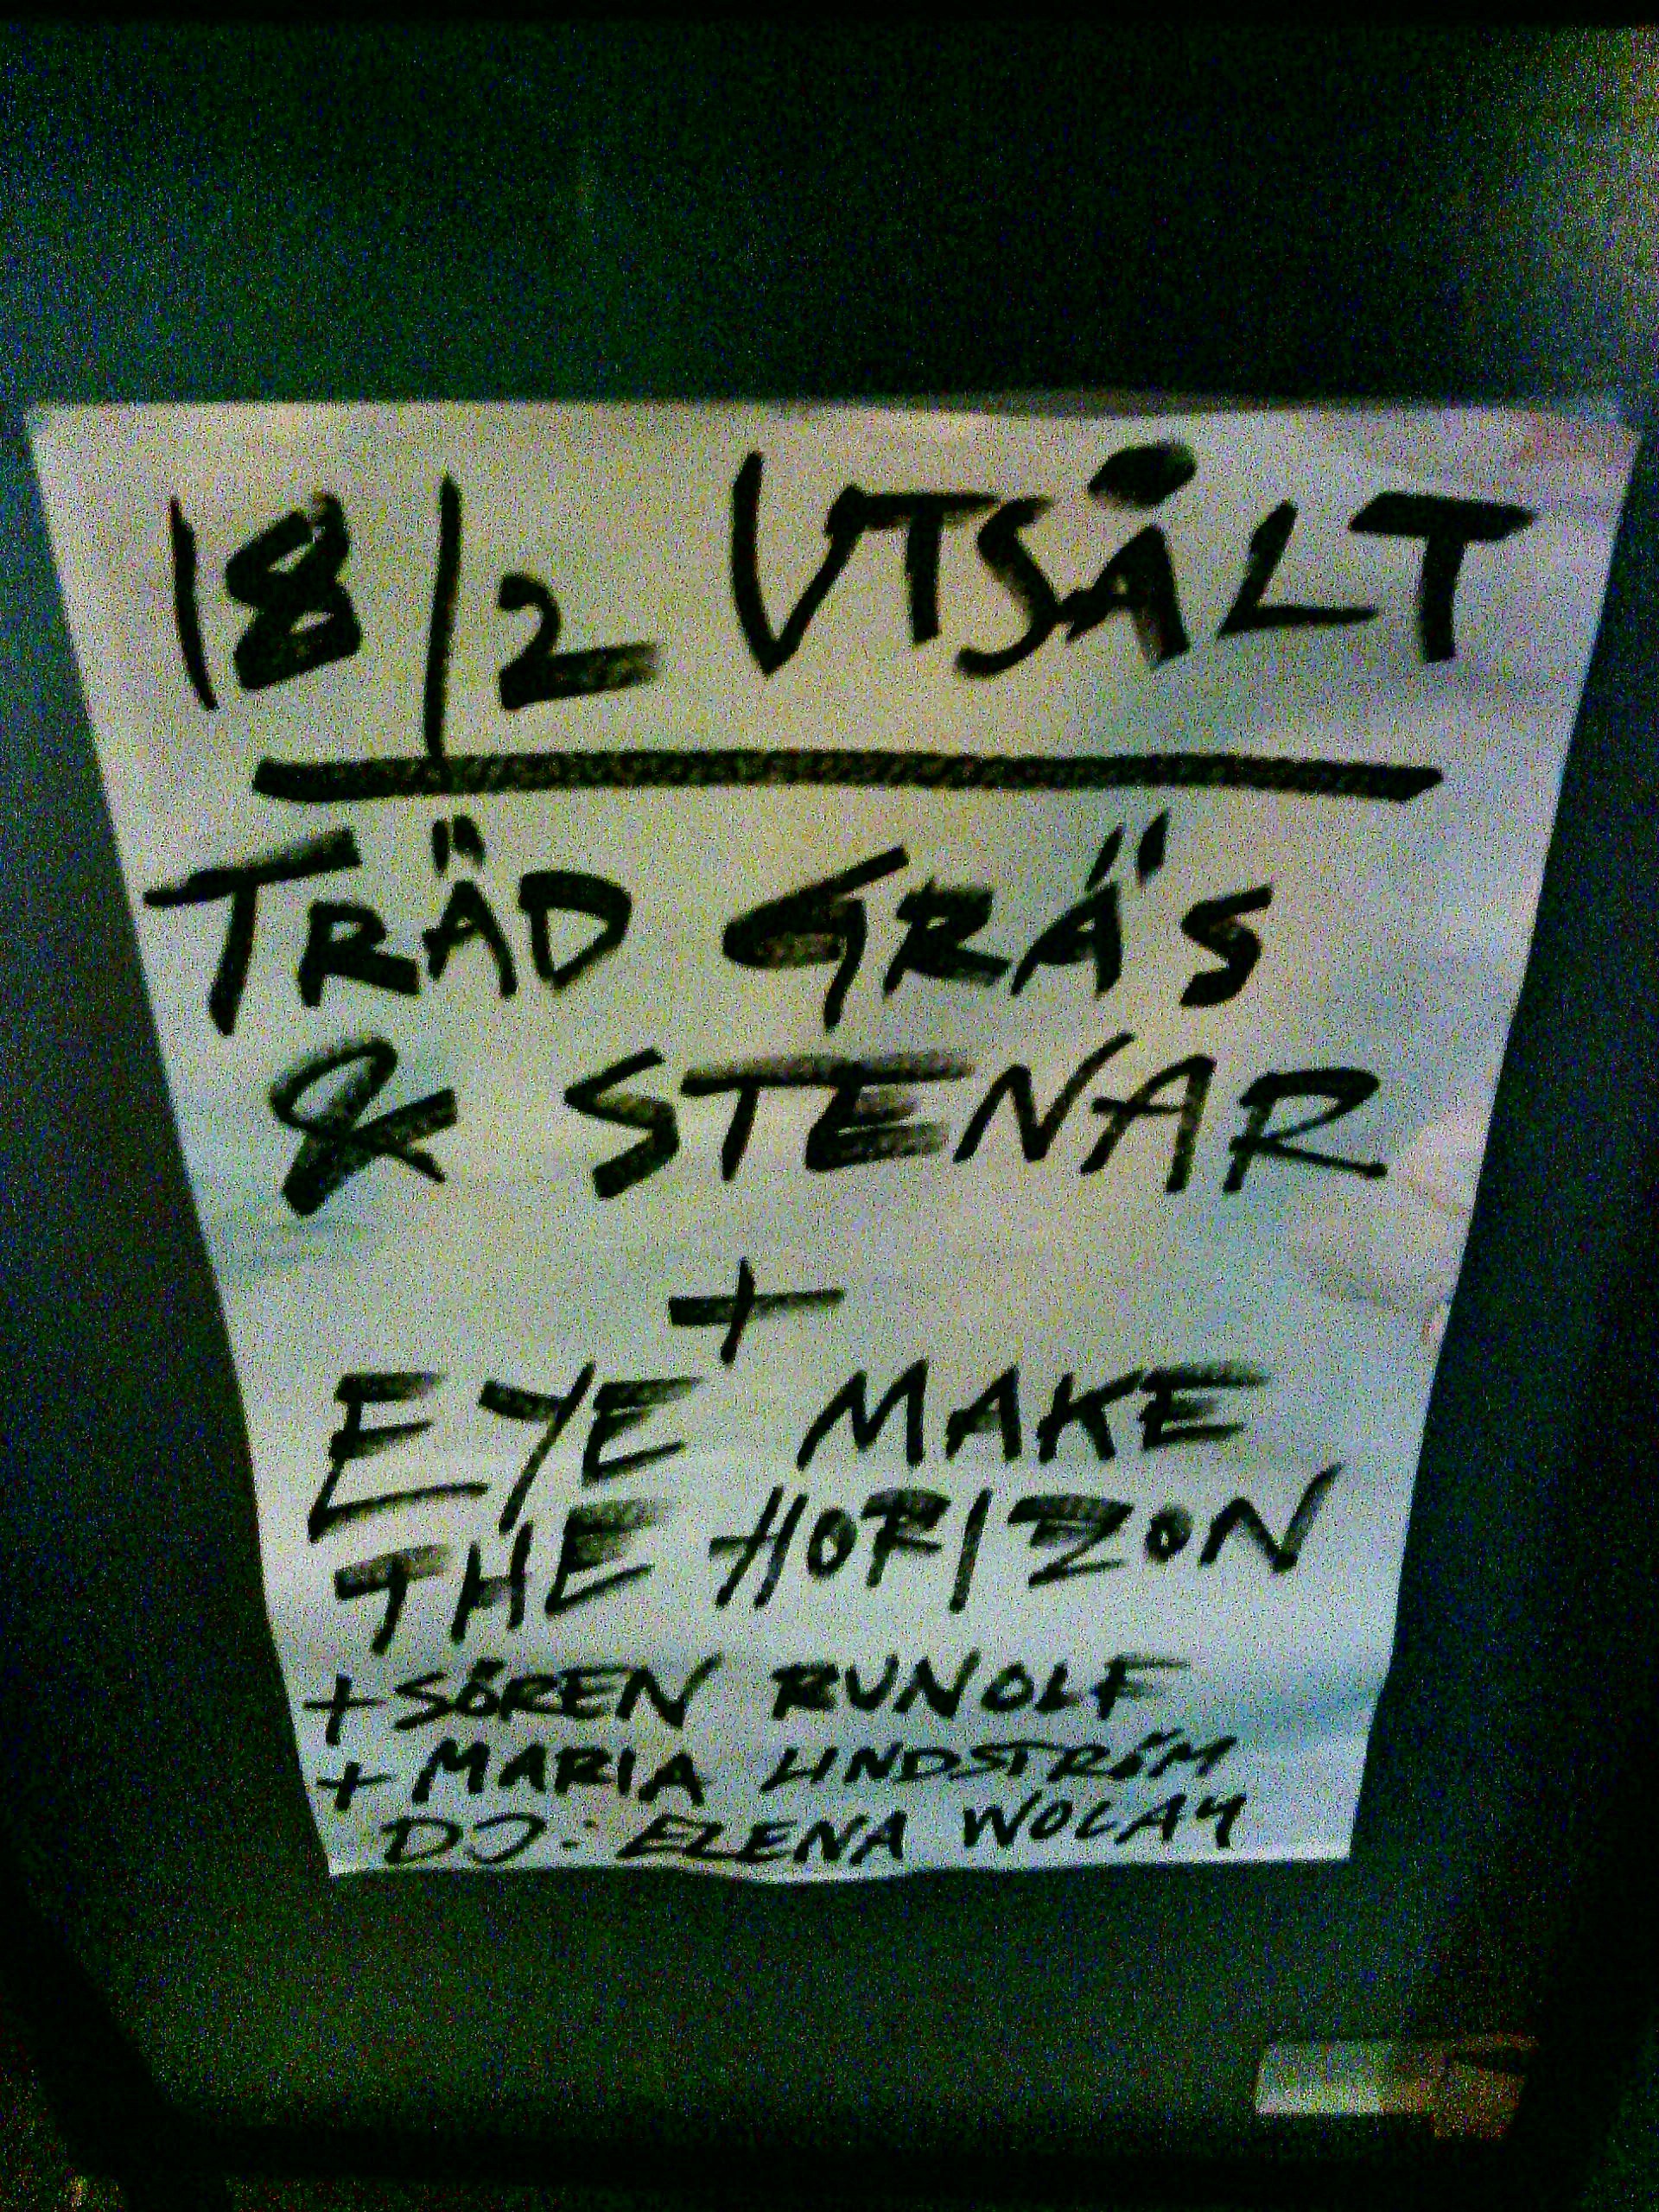 18/2 UTSÅLT
TRÄD GRÄS
& STENAR
+
EYE MAKE
THE HORIZON
+ SÖREN RUNOLF
+ MARIA LINDSTRÖM
DJ: ELENA WOLAY